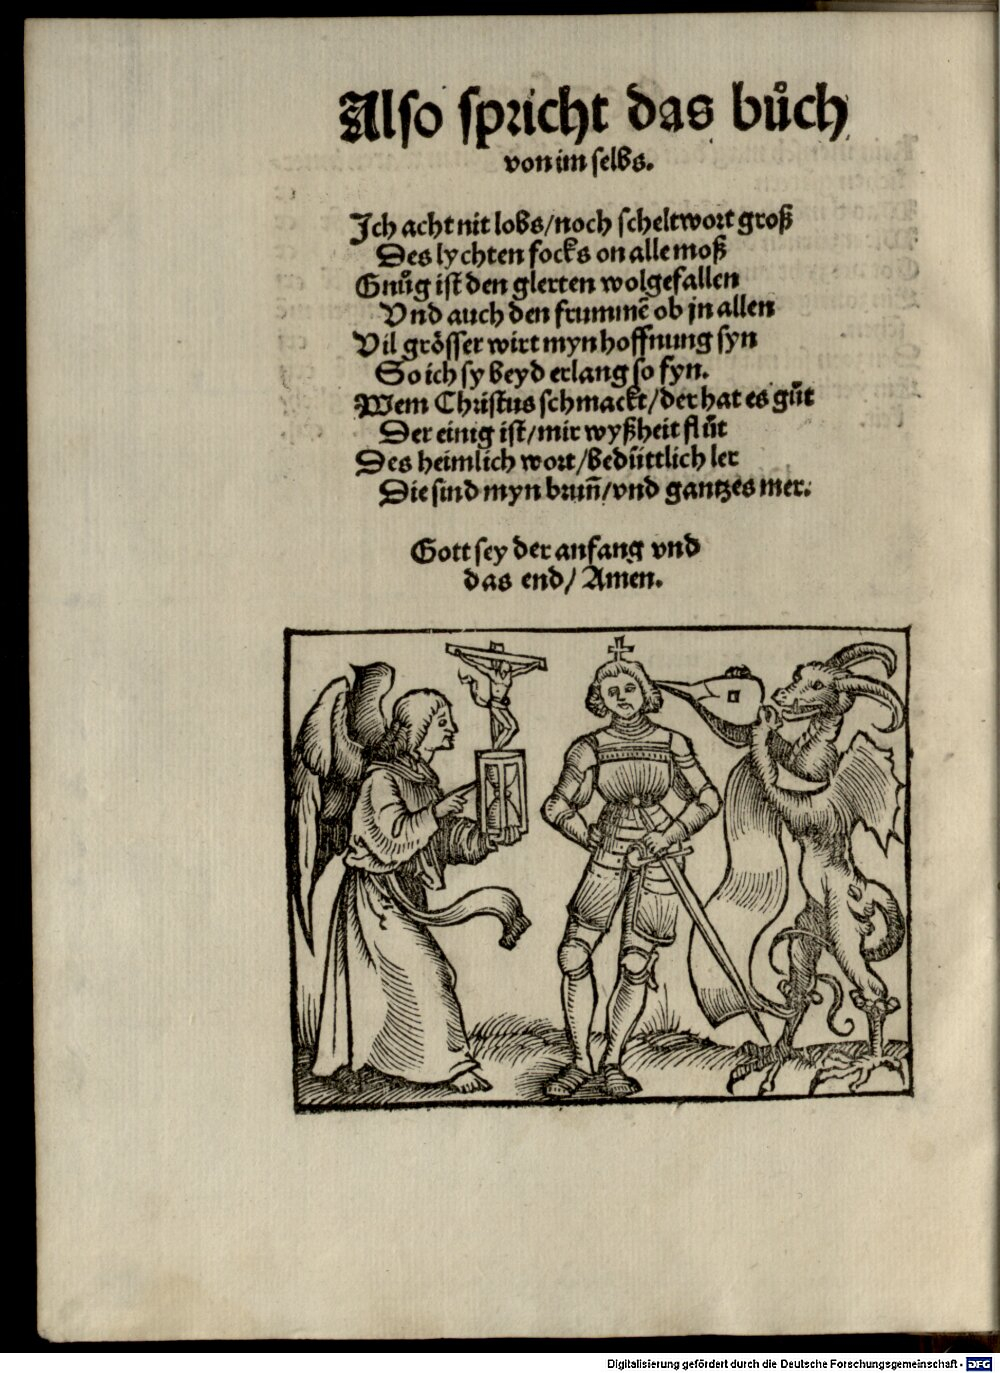 Also spricht das bůch
von im selbs.
Ich acht nit lobs/noch scheltwort groß
Des lychten focks on alle moß
Gnůg ist den glerten wolgefallen
Vnd auch den frummē ob jn allen
Vil grösser wirt myn hoffnung syn
So ich sy beyd erlang so fyn.
Wem Christus schmackt/der hat es gůt
Der einig ist/mir wyßheit flůt
Des heimlich wort/bedüttlich ler
Die sind myn brun̄/vnd gantzes mer.
Gott sey der anfang vnd
das end/ Amen.
Digitalisierung gefördert durch die Deutsche Forschungsgemeinschaft - DFG